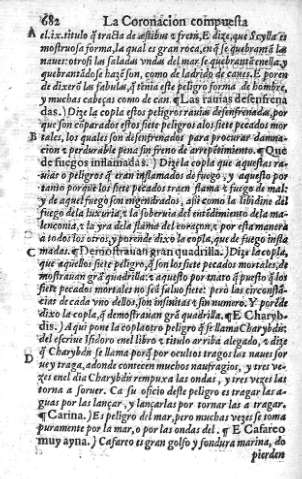 682 La Coronacion compuesta
A el.ix.titulo q̃ tracta de æstibus & fretis. E dize, que Scylla es
mostruosa forma, la qual es gran roca, en q̃ se quebrantã las
naues: otrosi las saladas vndas del mar se quebrantã enella, y
quebrantãdose hazẽ son, como de ladrido de canes. E poren
de dixerõ las fabulas, q̃ tenia este peligro forma de hombre,
y muchas cabeças como de can. ¶ Las rauias desenfrena
das.) Dize la copla estos peligros rauias desenfrenadas, por
que son cõparador estos siete peligros alos siete pecados mor
B tales, los quales son desenfrenados para procurar damna-
cion & perdurable pena sin freno de arrepẽtimiento. ¶ Que
de fuegos inflamadas.) Dize la copla que aquestas ra-
uias o peligros q̃ eran inflamados de fuego, y aquesto por
tanto porque los siete pecados traen flama & fuego de mal:
y de aquel fuego son engendrados, assi como la libidine del
fuego dela luxuria, & la soberuia del entẽdimiento dela ma-
lenconia, & la yra dela flama del coraçon, & por esta manera
a todos los otros, y porende dixo la copla, que de fuego infla
C madas. ¶ Demostrauan gran quadrilla.) Dize la copla,
que aquellos siete peligros, q̃ son los siete pecados mortales, de
mostrauan grã quadrilla: & aquesto por tanto q̃ puesto q̃ los
siete pecados mortales no seã saluo siete: pero las circunstã-
cias de cada vno dellos, son infinitas & sin numero. Y porẽde
dixo la copla, q̃ demostrauan grã quadrilla. ¶ E Charyb-
dis.) Aqui pone la copla otro peligro q̃ se llama Charybdis:
del escriue Isidoro enel libro & titulo arriba alegado, & dize
D q̃ Charybdis se llama porq̃ por ocultos tragos las naues sor
ue y traga, adonde contecen muchos naufragios, y tres ve-
zes enel dia Charybdis rempuxa las ondas, y tres vezes las
torna a soruer. Ca su oficio deste peligro es tragar las a-
guas por las lançar, y lançarlas por tornar las a tragar.
¶ Carina.) Es peligro del mar, pero muchas vezes se toma
puramente por la mar, o por las ondas del. ¶ E Cafareo
muy ayna.) Cafareo es gran golfo y fondura marina, do
pierden